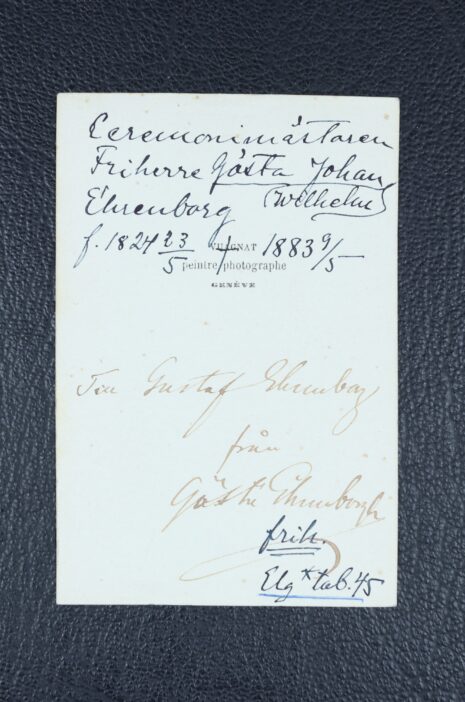 Ceremonimästaren
Friherre Gösta Johan
Ehrenborg (Wilhelm)
f. 1824 23/5 † 1883 9/5
VUAGNAT
peintre photographe
GENÈVE
Till Gustaf Ehrenborg
från
Gösta Ehrenborgh
frih.
Elg * tab. 45